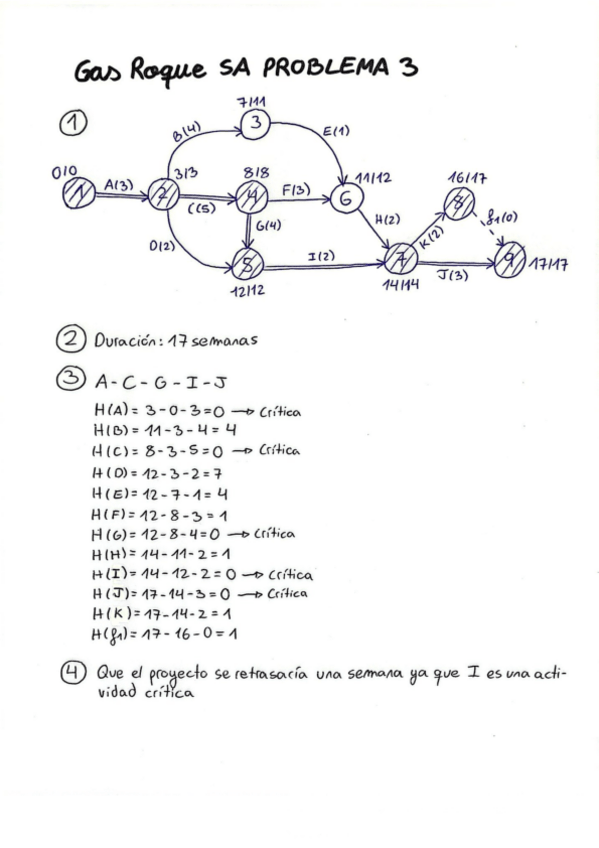 Gas Roque SA PROBLEMA 3
1
7/11
B(4)
3
E(1)
0/0
A(3)
3/3
8/8
11/12
16/17
1
2
C(5)
4
F(3)
6
8
f1(0)
H(2)
K(2)
D(2)
G(4)
5
I(2)
7
J(3)
9
17/17
12/12
14/14
2 Duración: 17 semanas
3 A-C-G-I-J
H(A) = 3-0-3=0 → Crítica
H(B) = 11-3-4=4
H(C) = 8-3-5=0 → Crítica
H(D) = 12-3-2=7
H(E) = 12-7-1=4
H(F) = 12-8-3=1
H(G) = 12-8-4=0 → Crítica
H(H) = 14-11-2=1
H(I) = 14-12-2=0 → Crítica
H(J) = 17-14-3=0 → Crítica
H(K) = 17-14-2=1
H(f1) = 17-16-0=1
4 Que el proyecto se retrasaría una semana ya que I es una acti-
vidad crítica